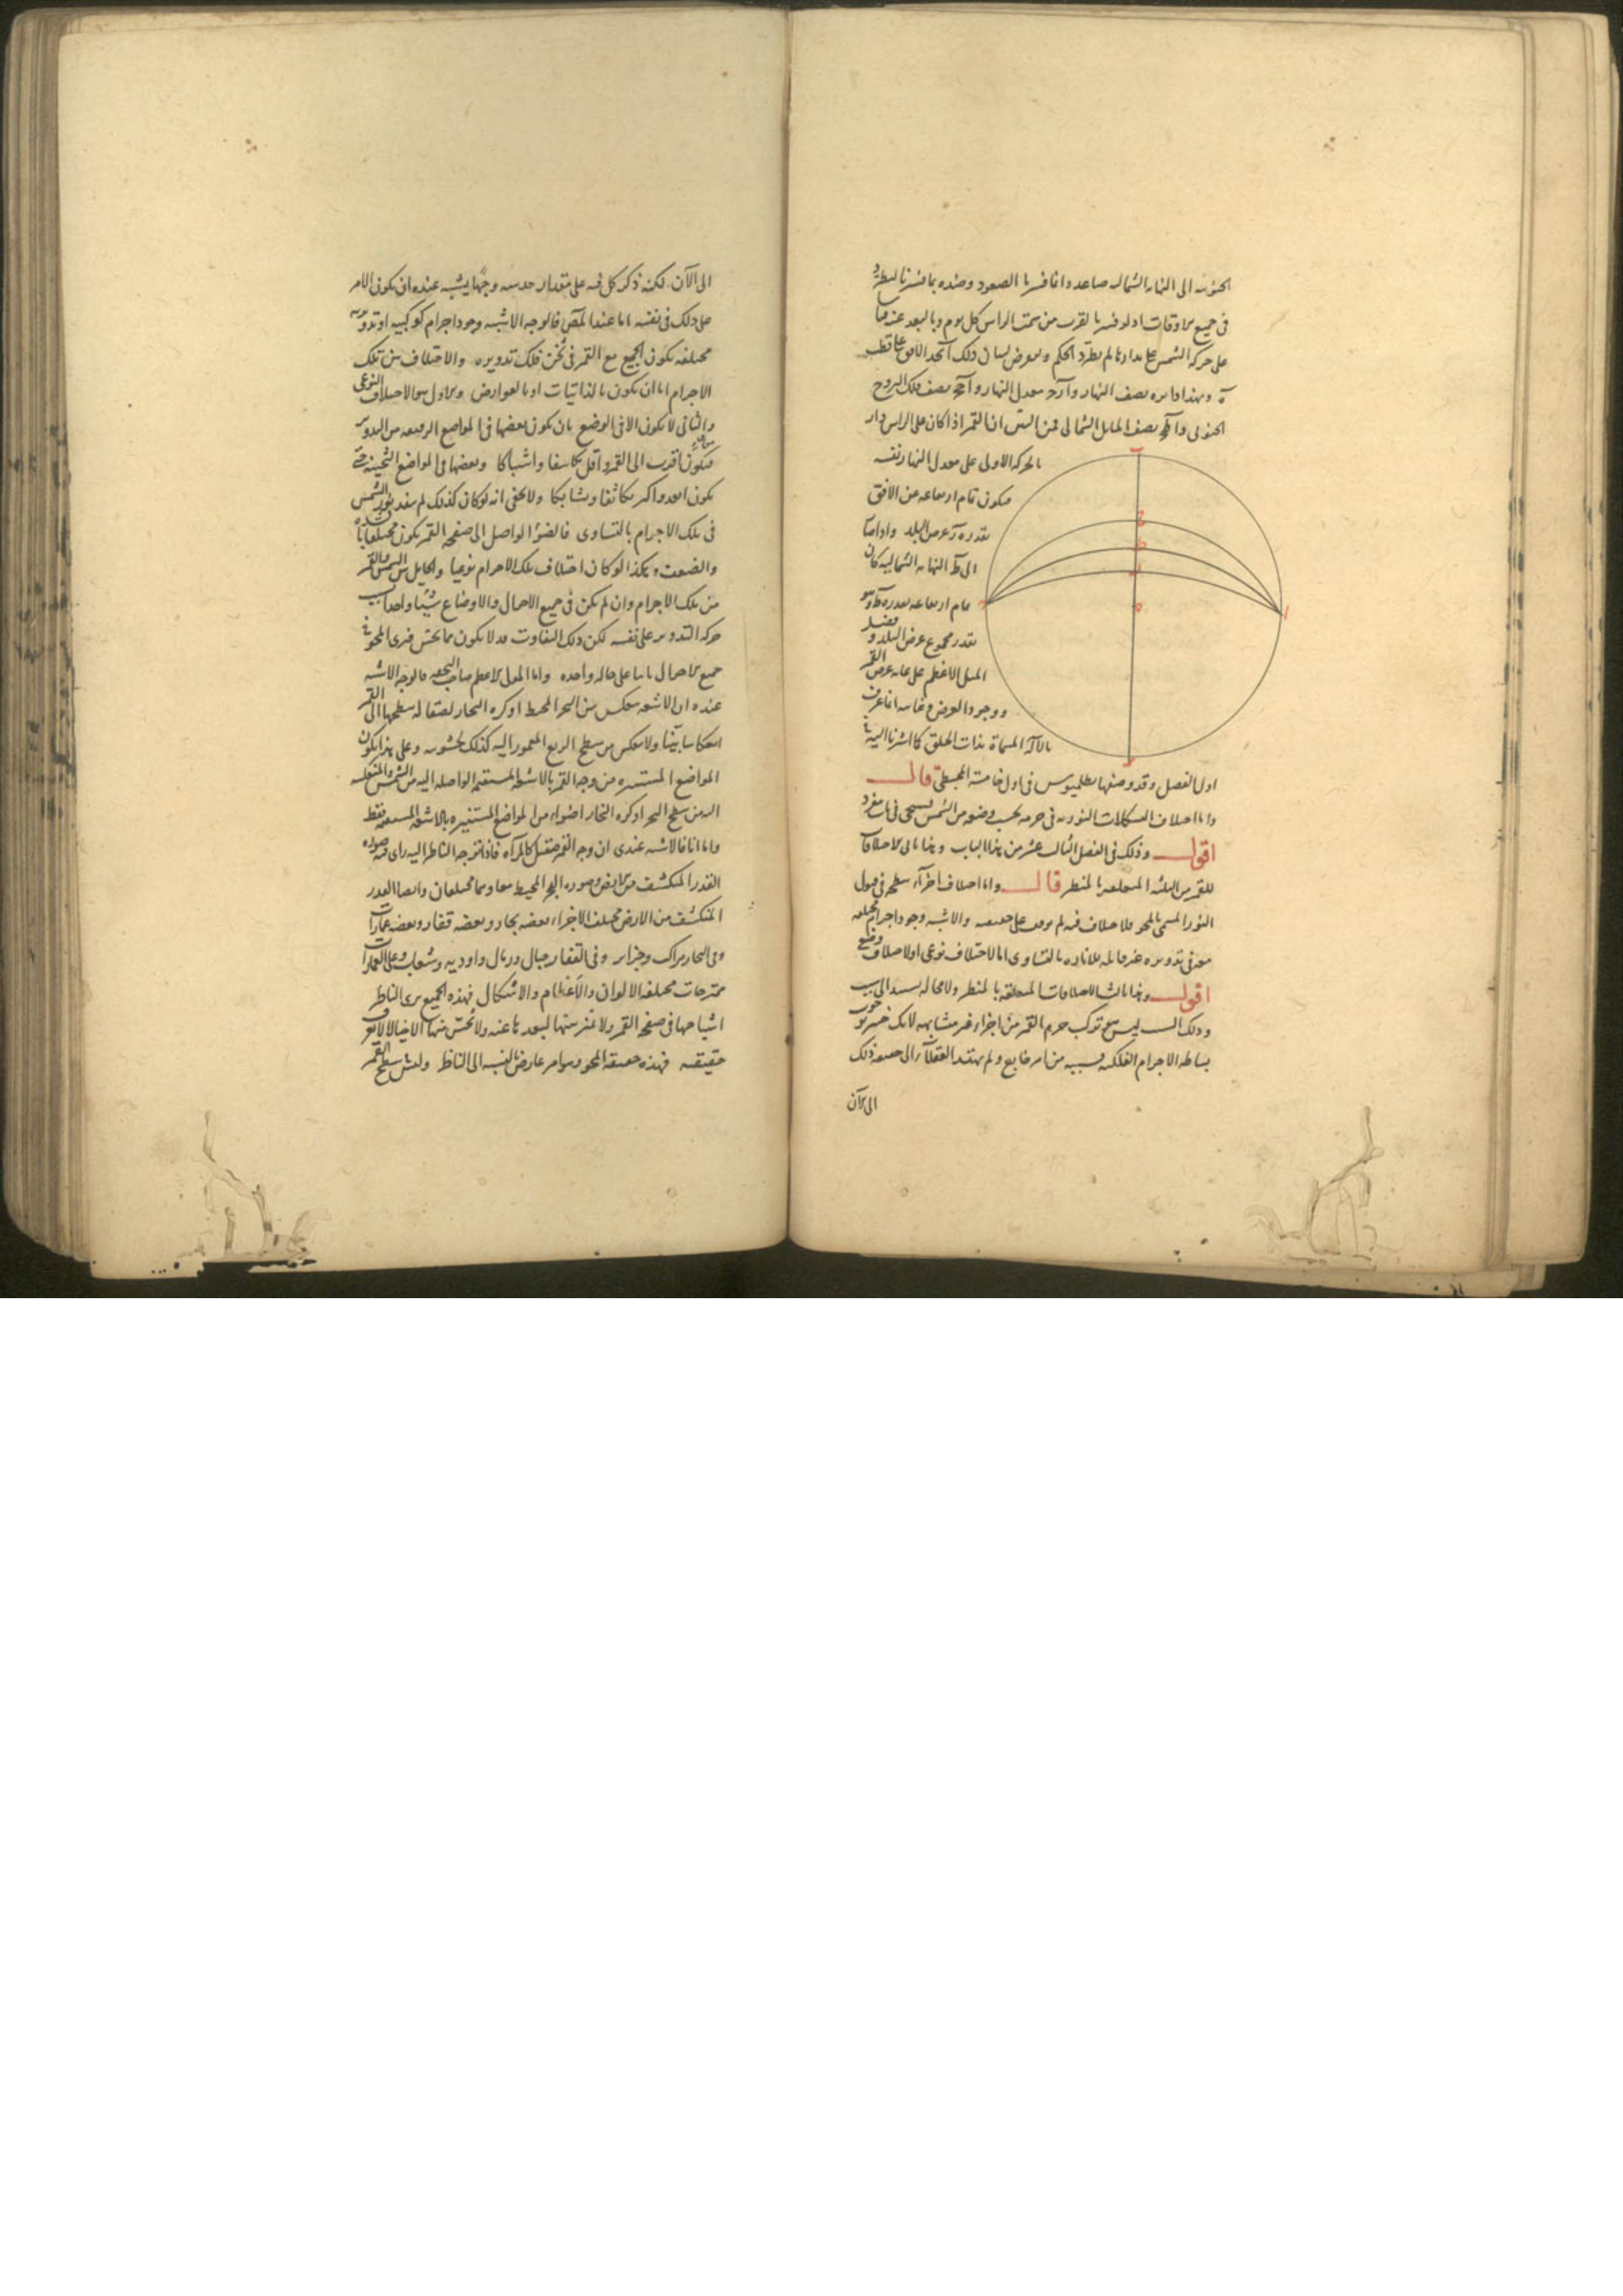 الى النهاية الشمالية صاعد وانما فسرنا الصعود وضده بما فسرنا ليطرد
فى جميع الاوقات اذ لو فسر بالقرب من سمت الراس كل يوم وبالبعد عنه
على حركة الشمس على مداراتها لم يطرد الحكم ولنعرض لبيان ذلك الافق على قطب
ه وهذا دائرة نصف النهار و معدل النهار و نصف فلك البروج
الجنوبى و نصف المايل الشمالى فمن البين ان القمر اذا كان على الراس دار
بالحركة الاولى على معدل النهار نفسه
فيكون تمام ارتفاعه عن الافق
بقدر عرض البلد واذا
الى النهاية الشمالية كان
تمام ارتفاعه بقدر
بقدر مجموع عرض البلد و فضل
الميل الاعظم على غاية عرض القمر
ووجود العرض وغايته انما عرف
بالآلة المسماة بذات الحلق كما اشرنا اليه فى
اول الفصل وقد وصفها بطلميوس فى اول خامسة المجسطى قال
واما اختلاف التشكلات النورية فى جرمه بحسب وضعه من الشمس فسيجى فى باب مفرد
اقول وذلك فى الفصل الثالث عشر من هذا الباب وهذا ثانى الاختلافات
للقمر من الثلثة المتعلقة بالمنظر قال واما اختلاف اجزاء سطحه فى قبول
النور المسمى بالمحو فلاختلاف فيه لم يوقف على حقيقته والاشبه وجود اجرام مختلفة
معه فى تدويره غير قابلة للانارة بالتساوى اما لاختلاف نوعى او لاختلاف وضع
اقول وهذا ثالث الاختلافات المتعلقة بالمنظر ولا محالة يستند الى سبب
وذلك السبب ليس هو تركب جرم القمر من اجزاء غير متشابهة لانك خبير
بساطة الاجرام الفلكية فسببه من امر خارج ولم يهتد العقلاء الى حقيقة ذلك
الى الآن
الى الآن لكنه ذكر كل فيه على مقدار حدسه وجها يشبه عنده ان يكون الامر
على ذلك فى نفسه اما عند المص فالوجه الاشبه وجود اجرام كوكبية او تدويرية
مختلفة يكون الجميع مع القمر فى ثخن فلك تدويره والاختلاف بين تلك
الاجرام اما ان يكون بالذاتيات او بالعوارض والاول هو الاختلاف النوعى
والثانى لا يكون الا فى الوضع بان يكون بعضها فى المواضع الرقيقة من التدوير
فيكون اقرب الى القمر واقل تكاثفا واشتباكا وبعضها فى المواضع الثخينة
يكون ابعد واكثر تكاثفا وتشابكا ولا يخفى انه لو كان كذلك لم ينفذ نور الشمس
فى تلك الاجرام بالتساوى فالضوء الواصل الى صفحة القمر يكون مختلفا بالشدة
والضعف وهكذا لو كان اختلاف تلك الاجرام نوعيا والحايل بين الشمس والقمر
من تلك الاجرام وان لم يكن فى جميع الاحوال والاوضاع شيئا واحدا بسبب
حركة التدوير على نفسه لكن ذلك التفاوت قد لا يكون مما يحس فيرى المحو فى
جميع الاحوال ثابتا على حالة واحدة واما المولى الاعظم صاحب التحفة فالوجه الاشبه
عنده ان الاشعة تنعكس من البحر المحيط او كرة البخار لصقالة سطحها الى القمر
انعكاسا بينا ولا تنعكس من سطح الربع المعمور اليه كذلك لخشونته وعلى هذا يكون
المواضع المستنيرة من وجه القمر بالاشعة المستقيمة الواصلة اليه من الشمس والمنعكسة
اليه من سطح البحر او كرة البخار اضوا من المواضع المستنيرة بالاشعة المستقيمة فقط
واما انا فالاشبه عندى ان وجه القمر صقيل كالمرآة فاذا توجه الناظر اليه راى فيه صورة
القدر المنكشف من الارض وصورة البحر المحيط معا وهما مختلفان وايضا القدر
المنكشف من الارض مختلف الاجزاء بعضه بحار وبعضه قفار وبعضه عمارات
وفى البحار مراكب وجزاير وفى القفار جبال ورمال واودية وشعاب وعلى العمارات
مختلفة الالوان والاعظام والاشكال فهذه الجميع يرى الناظر
اشباحها فى صفحة القمر ولا يميز بينها لبعدها عنه ولا يحس منها الا خيالا لا يعرف
حقيقته فهذه حقيقة المحو وهو امر عارض بالنسبة الى الناظر وليس سطح القمر